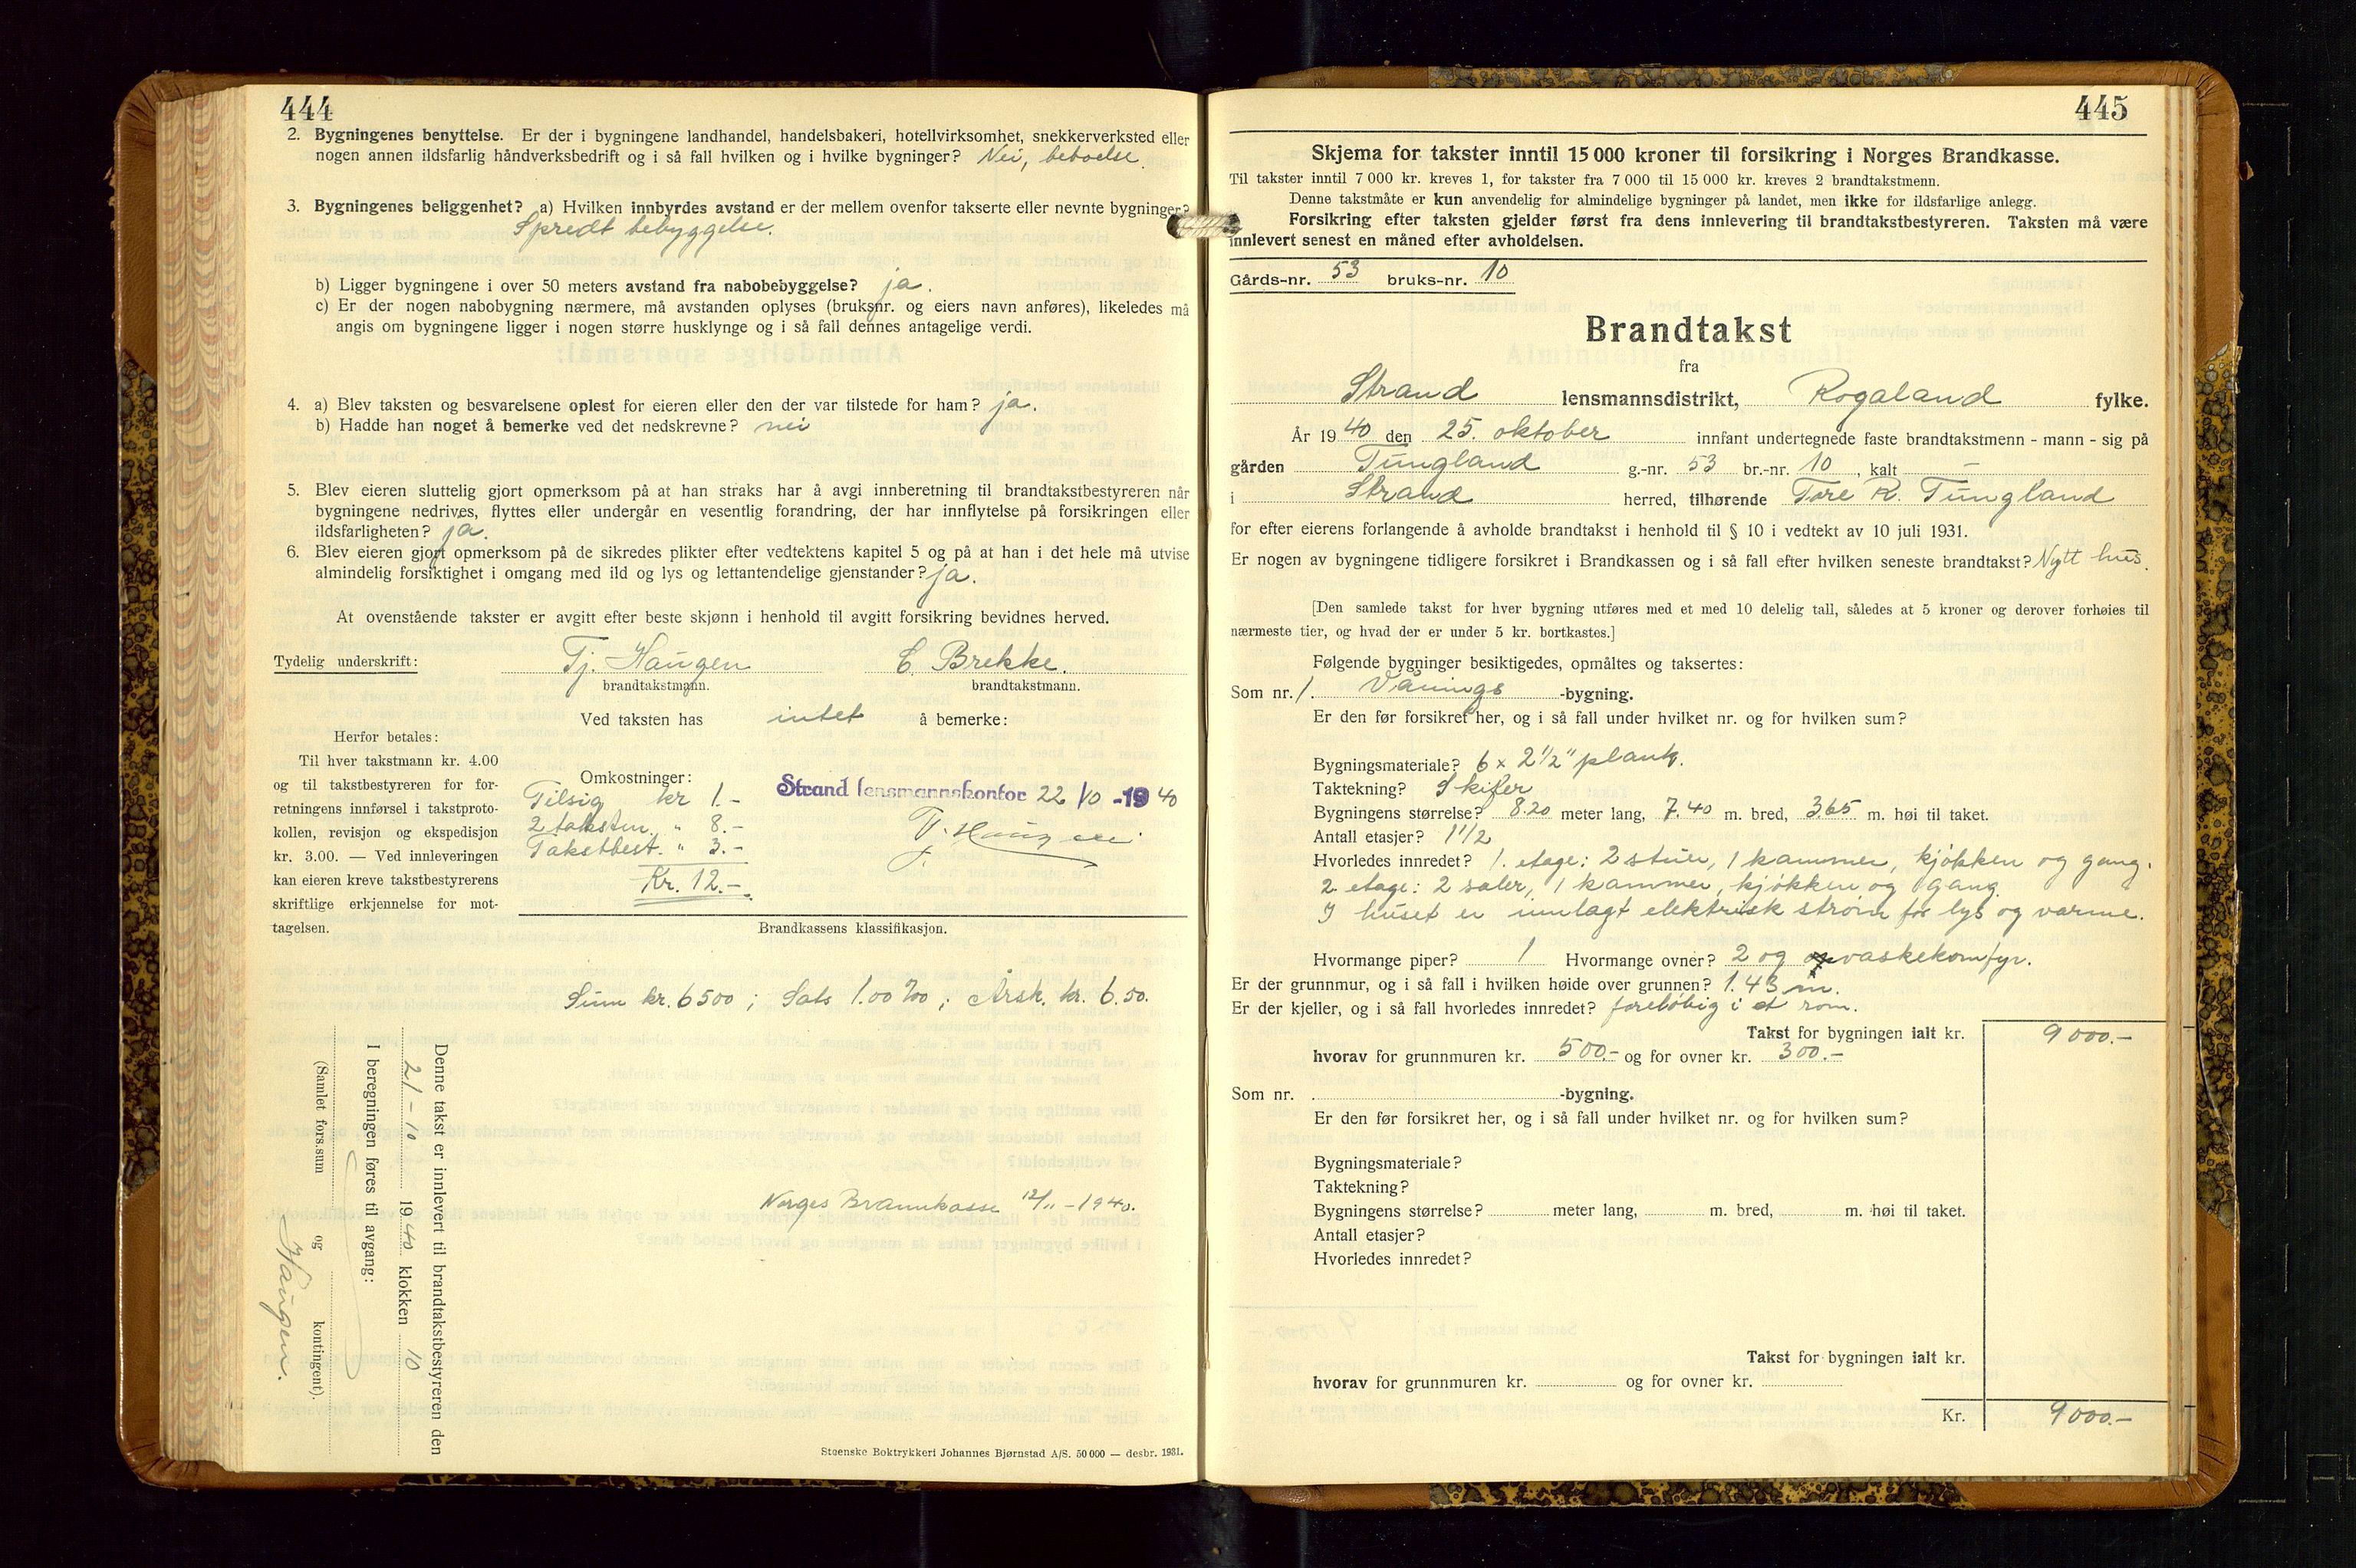 444
2. Bygningenes benyttelse. Er der i bygningene landhandel, handelsbakeri, hotellvirksomhet, snekkerverksted eller
nogen annen ildsfarlig håndverksbedrift og i så fall hvilken og i hvilke bygninger? Nei, beboelse.
3. Bygningenes beliggenhet? a) Hvilken innbyrdes avstand er der mellem ovenfor takserte eller nevnte bygninger?
Spredt bebyggelse.
b) Ligger bygningene i over 50 meters avstand fra nabobebyggelse? ja.
c) Er der nogen nabobygning nærmere, må avstanden oplyses (bruksnr. og eiers navn anføres), likeledes må
angis om bygningene ligger i nogen større husklynge og i så fall dennes antagelige verdi.
4. a) Blev taksten og besvarelsene oplest for eieren eller den der var tilstede for ham? ja.
b) Hadde han noget å bemerke ved det nedskrevne? nei
5. Blev eieren sluttelig gjort opmerksom på at han straks har å avgi innberetning til brandtakstbestyreren når
bygningene nedrives, flyttes eller undergår en vesentlig forandring, der har innflytelse på forsikringen eller
ildsfarligheten? ja.
6. Blev eieren gjort opmerksom på de sikredes plikter efter vedtektens kapitel 5 og på at han i det hele må utvise
almindelig forsiktighet i omgang med ild og lys og lettantendelige gjenstander? ja.
At ovenstående takster er avgitt efter beste skjønn i henhold til avgitt forsikring bevidnes herved.
Tydelig underskrift: Tj. Haugen C. Brekke.
brandtakstmann. brandtakstmann.
Ved taksten has intet å bemerke:
Herfor betales:
Til hver takstmann kr. 4.00
og til takstbestyreren for for-
retningens innførsel i takstproto-
kollen, revisjon og ekspedisjon
kr. 3.00. — Ved innleveringen
kan eieren kreve takstbestyrerens
skriftlige erkjennelse for mot-
tagelsen.
Omkostninger:
Tilsig kr 1.-
2 takstm. " 8.-
Takstbest. " 3.-
Kr. 12.-
Strand lensmannskontor 22/10-1940
T. Haugen
Brandkassens klassifikasjon.
Sum kr. 6500; Sats 1.00 ‰; Årsk. kr. 6.50.
Norges Brannkasse 12/11-1940.
Denne takst er innlevert til brandtakstbestyreren den
21-10 1940 klokken 10
I beregningen føres til avgang:
(Samlet fors.sum og kontingent).
Haugen.
Steenske Boktrykkeri Johannes Bjørnstad A/S. 50 000 — desbr. 1931.
445
Skjema for takster inntil 15 000 kroner til forsikring i Norges Brandkasse.
Til takster inntil 7 000 kr. kreves 1, for takster fra 7 000 til 15 000 kr. kreves 2 brandtakstmenn.
Denne takstmåte er kun anvendelig for almindelige bygninger på landet, men ikke for ildsfarlige anlegg.
Forsikring efter taksten gjelder først fra dens innlevering til brandtakstbestyreren. Taksten må være
innlevert senest en måned efter avholdelsen.
Gårds-nr. 53 bruks-nr. 10
Brandtakst
fra
Strand lensmannsdistrikt, Rogaland fylke.
År 1940 den 25. oktober innfant undertegnede faste brandtakstmenn - mann - sig på
gården Tungland g.-nr. 53 br.-nr. 10, kalt -
i Strand herred, tilhørende Tore R. Tungland
for efter eierens forlangende å avholde brandtakst i henhold til § 10 i vedtekt av 10 juli 1931.
Er nogen av bygningene tidligere forsikret i Brandkassen og i så fall efter hvilken seneste brandtakst? Nytt hus.
[Den samlede takst for hver bygning utføres med et med 10 delelig tall, således at 5 kroner og derover forhøies til
nærmeste tier, og hvad der er under 5 kr. bortkastes.]
Følgende bygninger besiktigedes, opmåltes og taksertes:
Som nr. 1. Vånings -bygning.
Er den før forsikret her, og i så fall under hvilket nr. og for hvilken sum?
Bygningsmateriale? 6 x 2 1/2" plank.
Taktekning? Skifer
Bygningens størrelse? 8.20 meter lang, 7.40 m. bred, 3.65 m. høi til taket.
Antall etasjer? 1 1/2
Hvorledes innredet? 1. etage: 2 stuer, 1 kammer, kjøkken og gang.
2 etage: 2 saler, 1 kammer, kjøkken og gang.
I huset er innlagt elektrisk strøm for lys og varme.
Hvormange piper? 1 Hvormange ovner? 2 og vaskekomfyr.
Er der grunnmur, og i så fall i hvilken høide over grunnen? 1.43 m.
Er der kjeller, og i så fall hvorledes innredet? foreløbig i et rom.
Takst for bygningen ialt kr. 9000.-
hvorav for grunnmuren kr. 500.- og for ovner kr. 300.-
Som nr. -bygning.
Er den før forsikret her, og i så fall under hvilket nr. og for hvilken sum?
Bygningsmateriale?
Taktekning?
Bygningens størrelse? meter lang, m. bred, m. høi til taket.
Antall etasjer?
Hvorledes innredet?
Takst for bygningen ialt kr.
hvorav for grunnmuren kr. og for ovner kr.
Kr. 9000.-